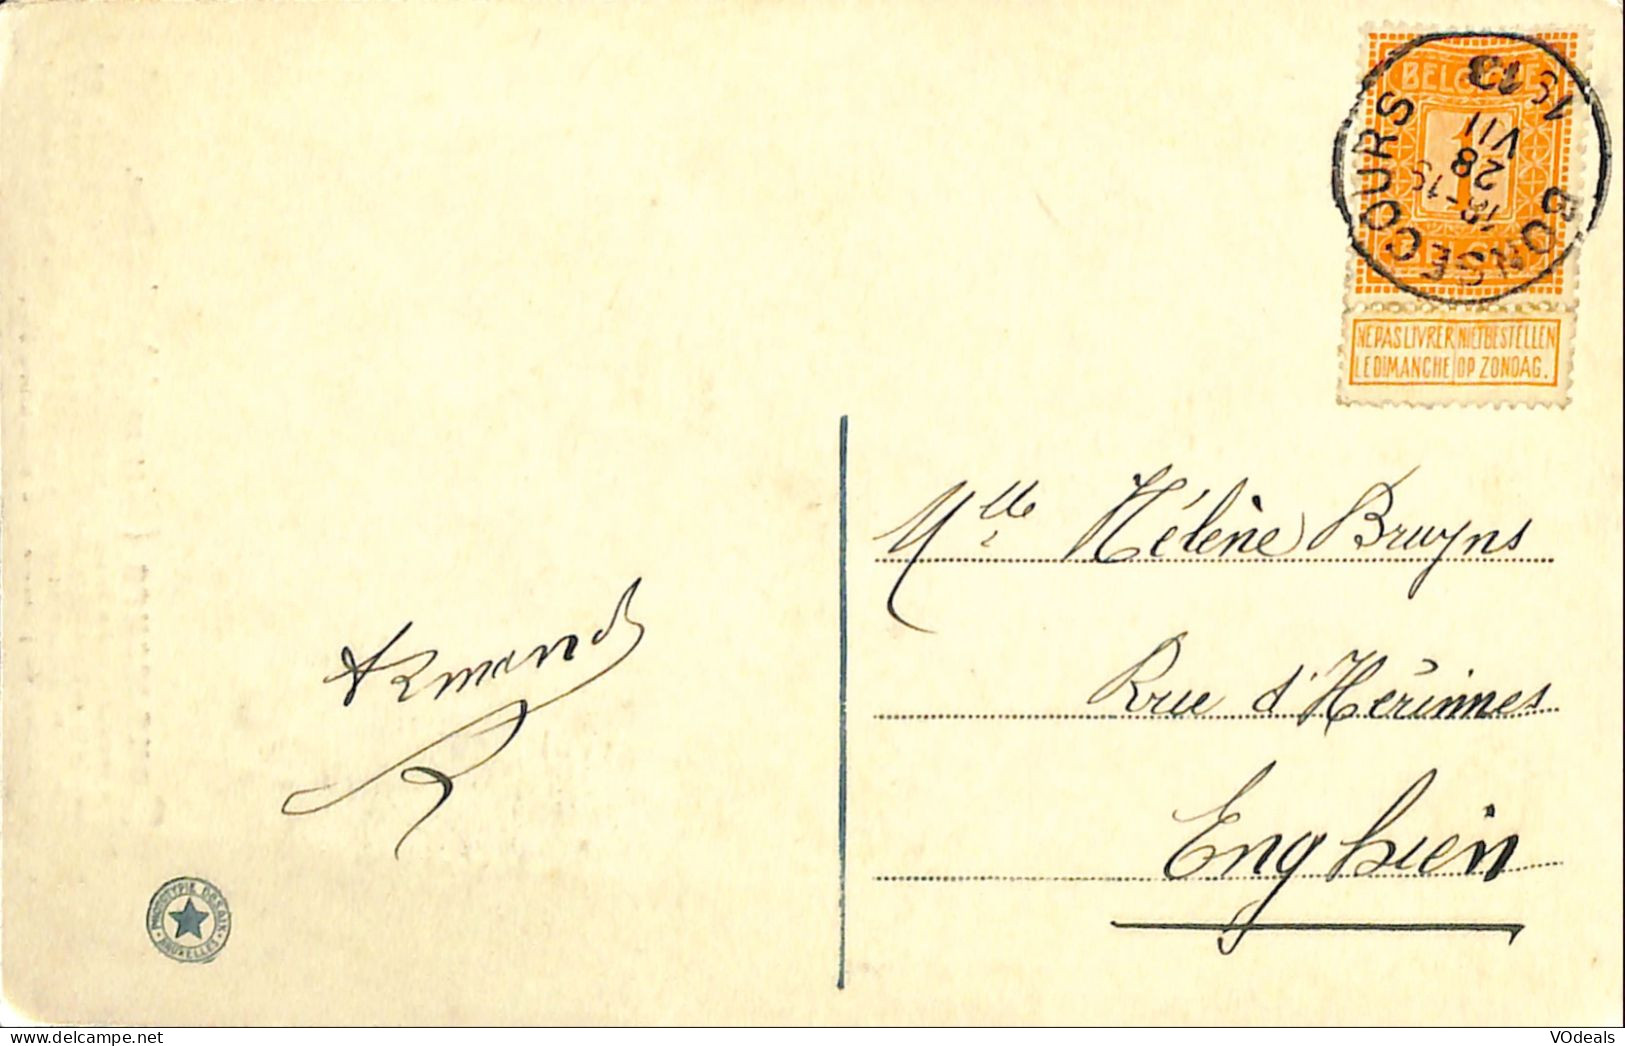 BELGIQUE
1
BELGIË
NE PAS LIVRER LE DIMANCHE
NIET BESTELLEN OP ZONDAG.
BONSECOURS
18-19
28
VII
1913
Mlle Hélène Bruyns
Rue d'Hérinnes
Enghien
Armand
BRUXELLES
VOdeals